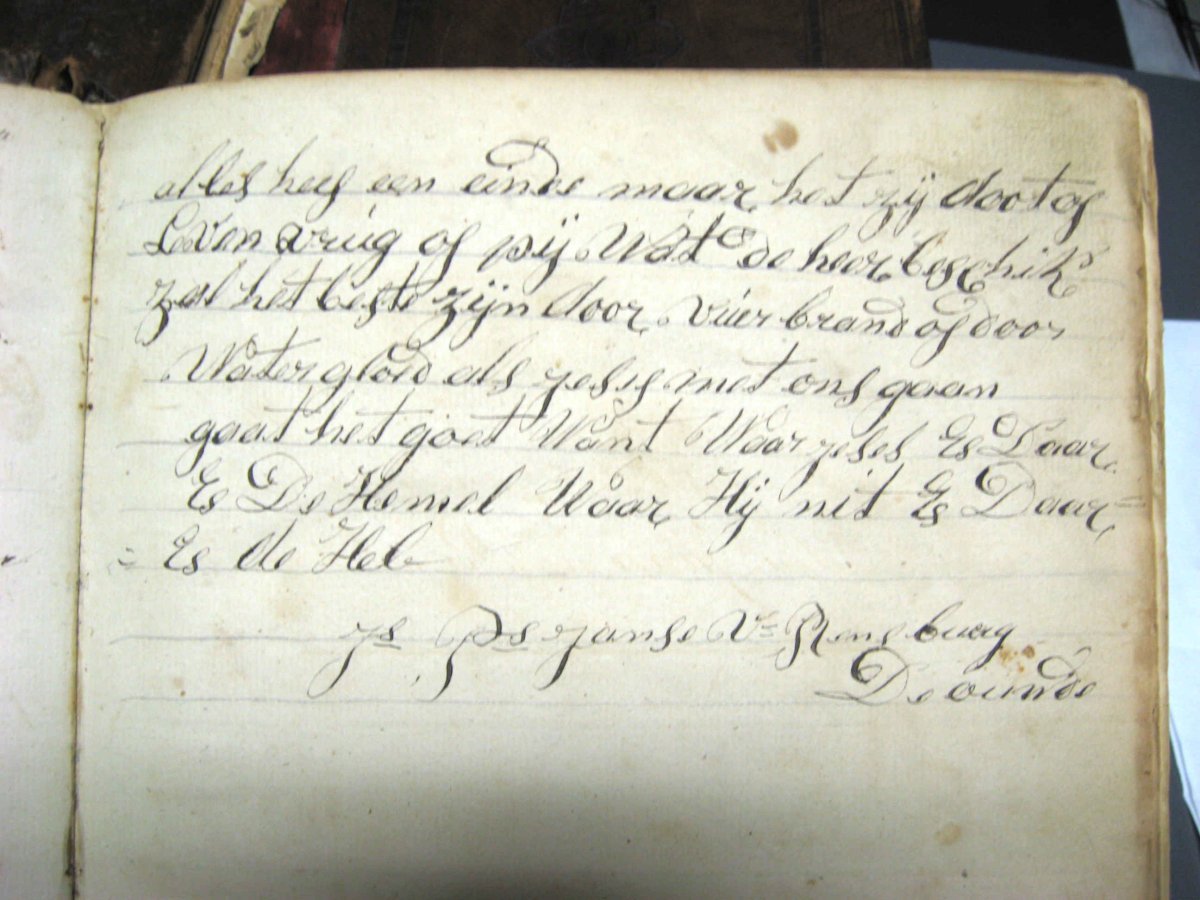 alles heef een einde maar het zij doot of
Leven vrug of pij Wat de heer beschik
zal het beste zijn door vuer brand of door
Water gloed als jesis met ons gaan
gaat het goet Want Waar jeses Es Daar
Es De Hemel Waar Hij nit Es Daar =
= Es de Hel
Js Ps Janse Vn Rensburg
De ounde